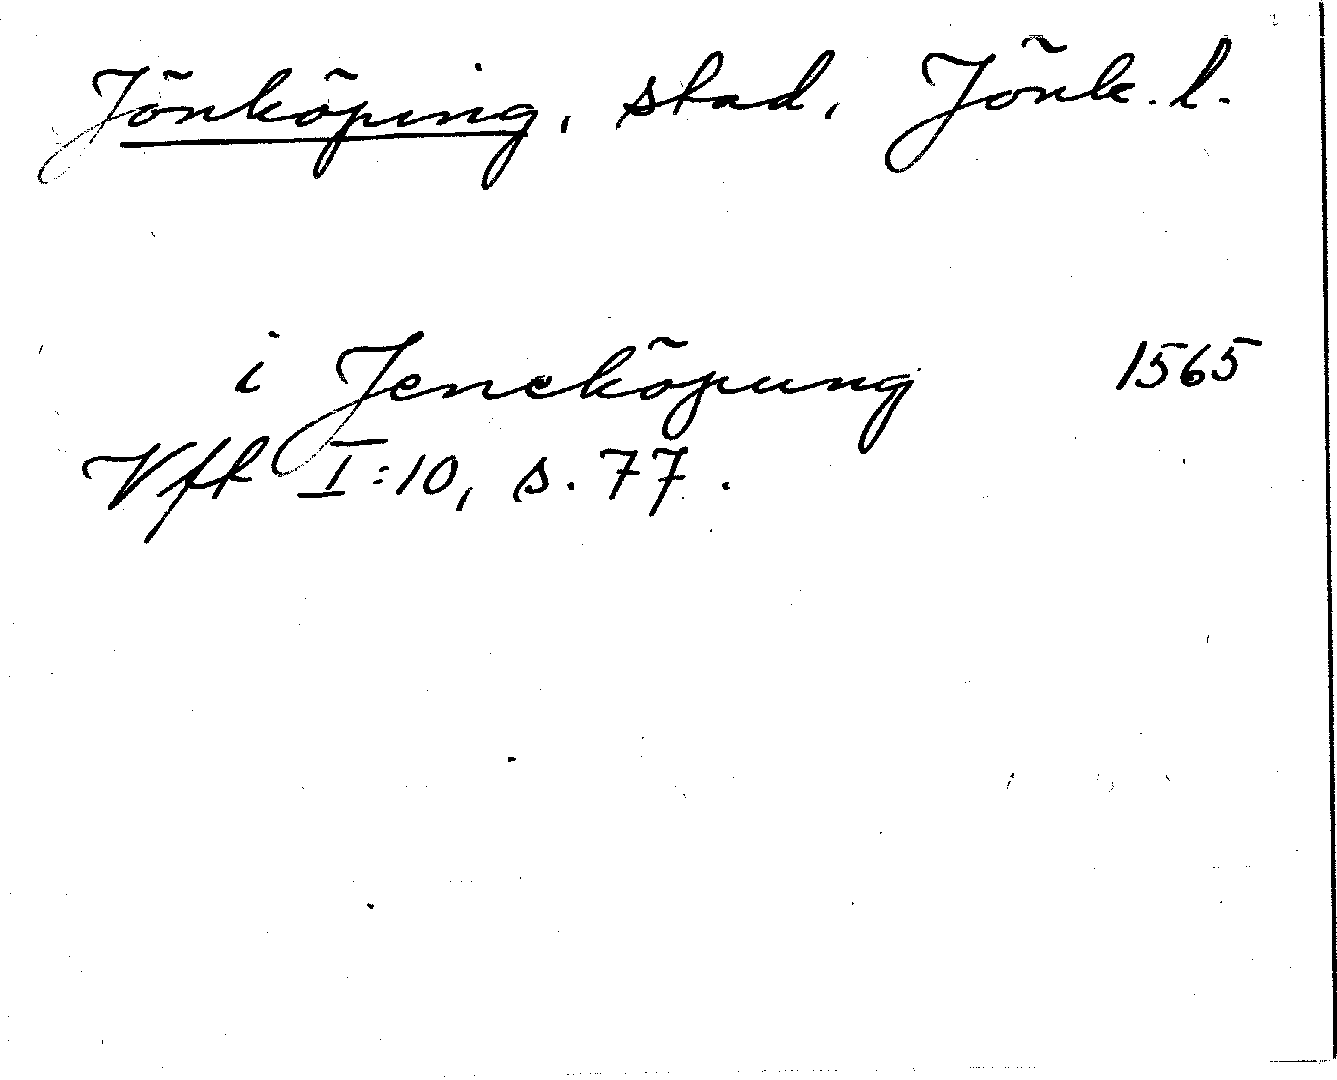 Jönköping, stad, Jönk. l.
i Jeneköpung 1565
Vfk I:10, s. 77.